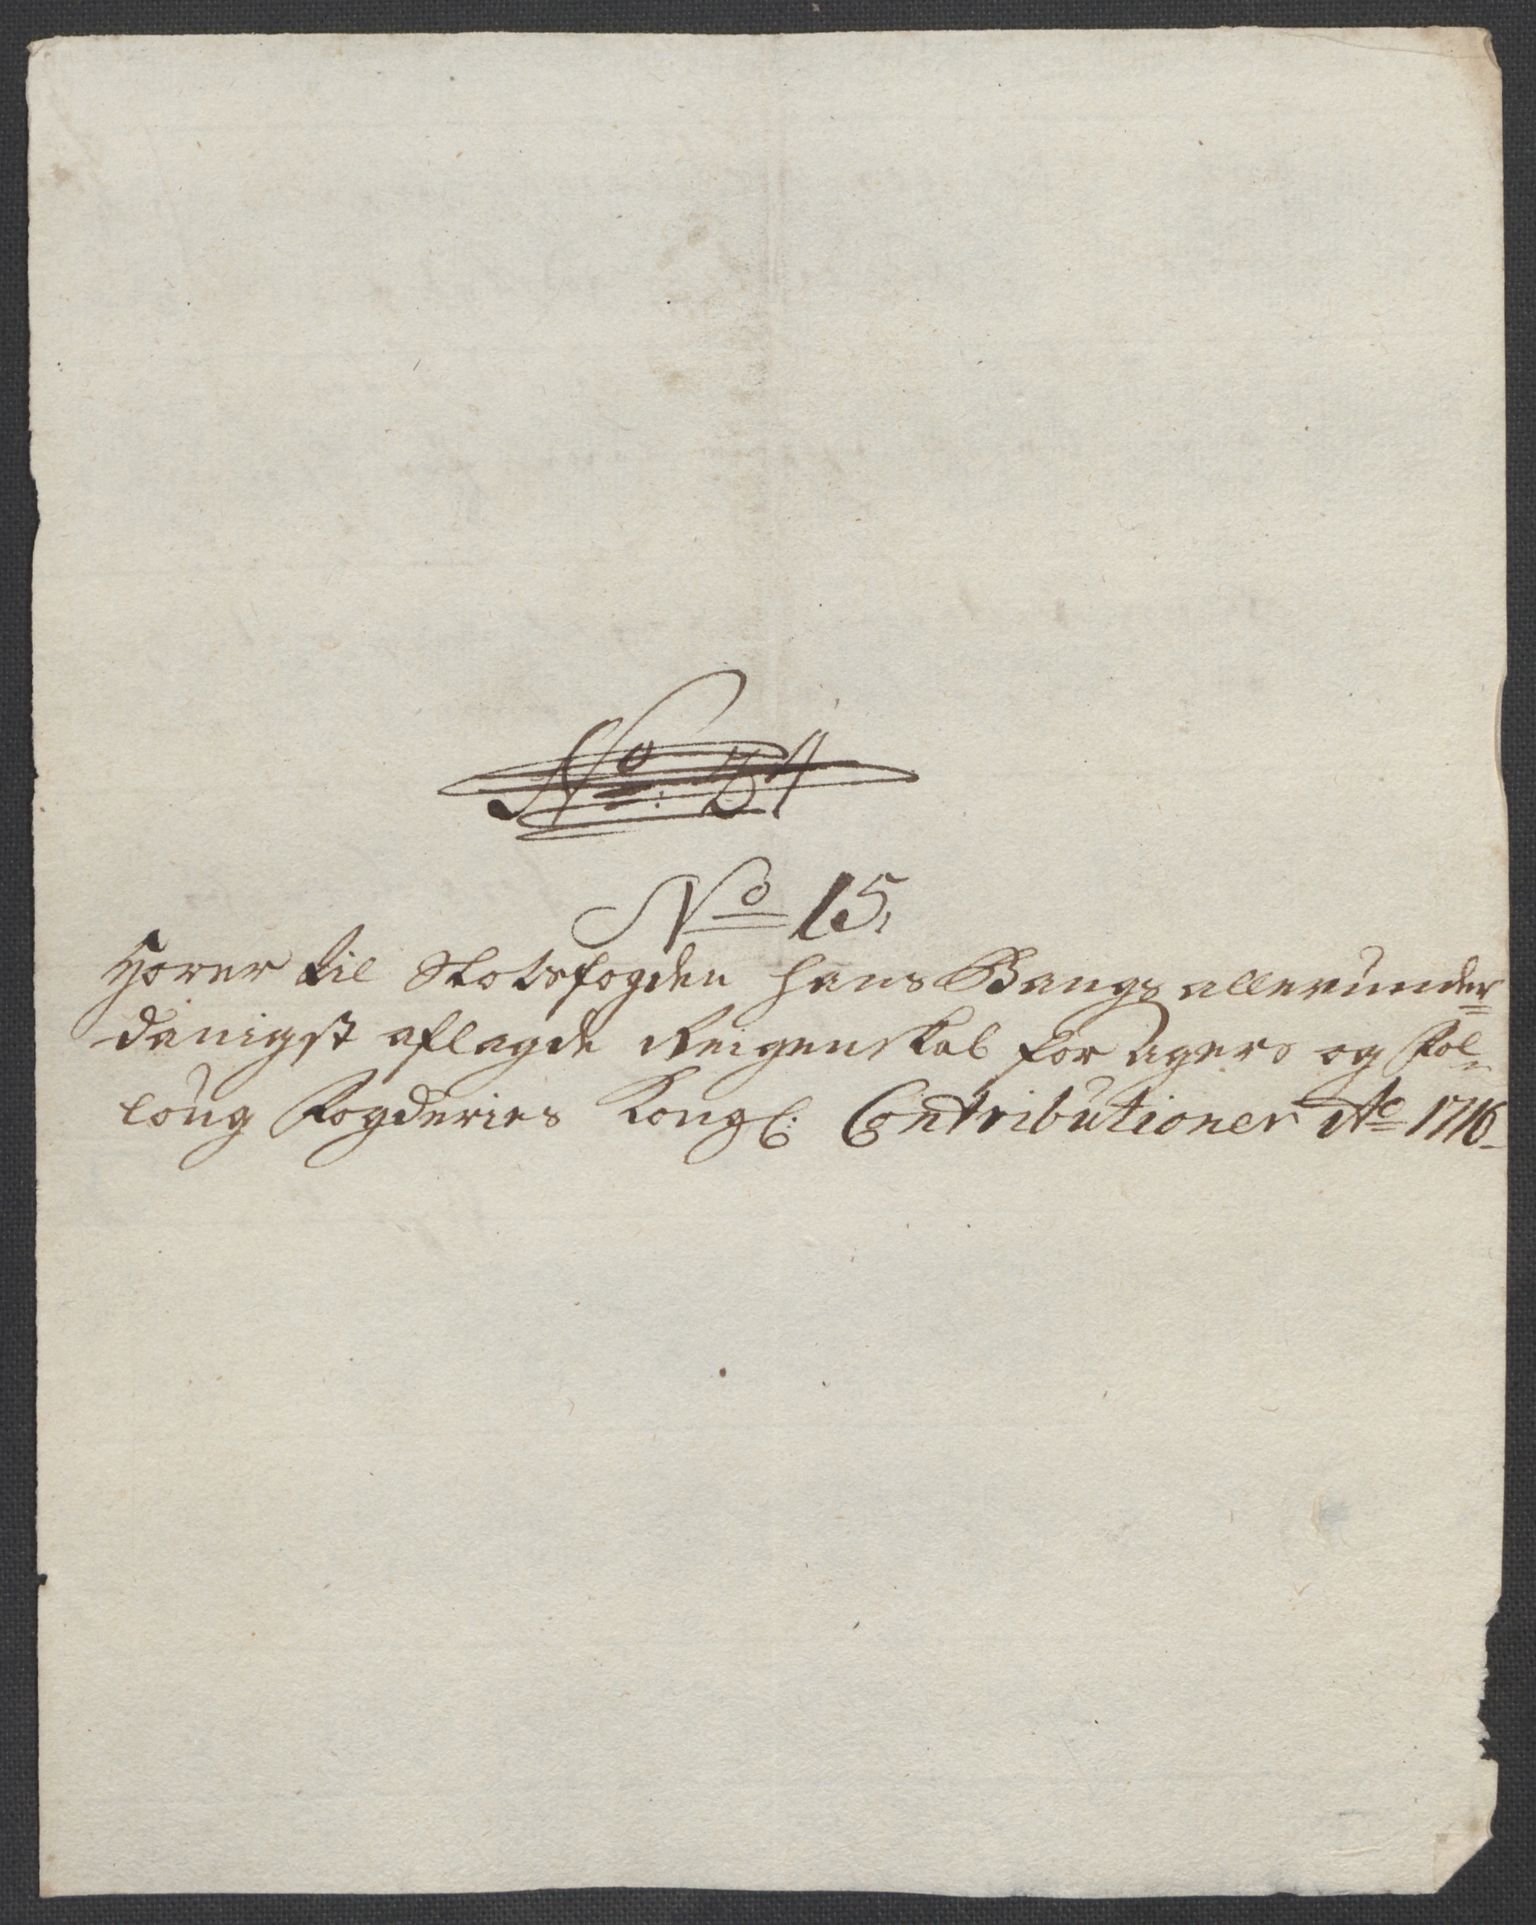 No: 34
No 15,
Hörer til Slotsfogden Hans Bangs allerunder=
danigst aflagde Reigenskab for Agers og Fol=
loug Fogderies Kongl: Contributioner Ao 1716